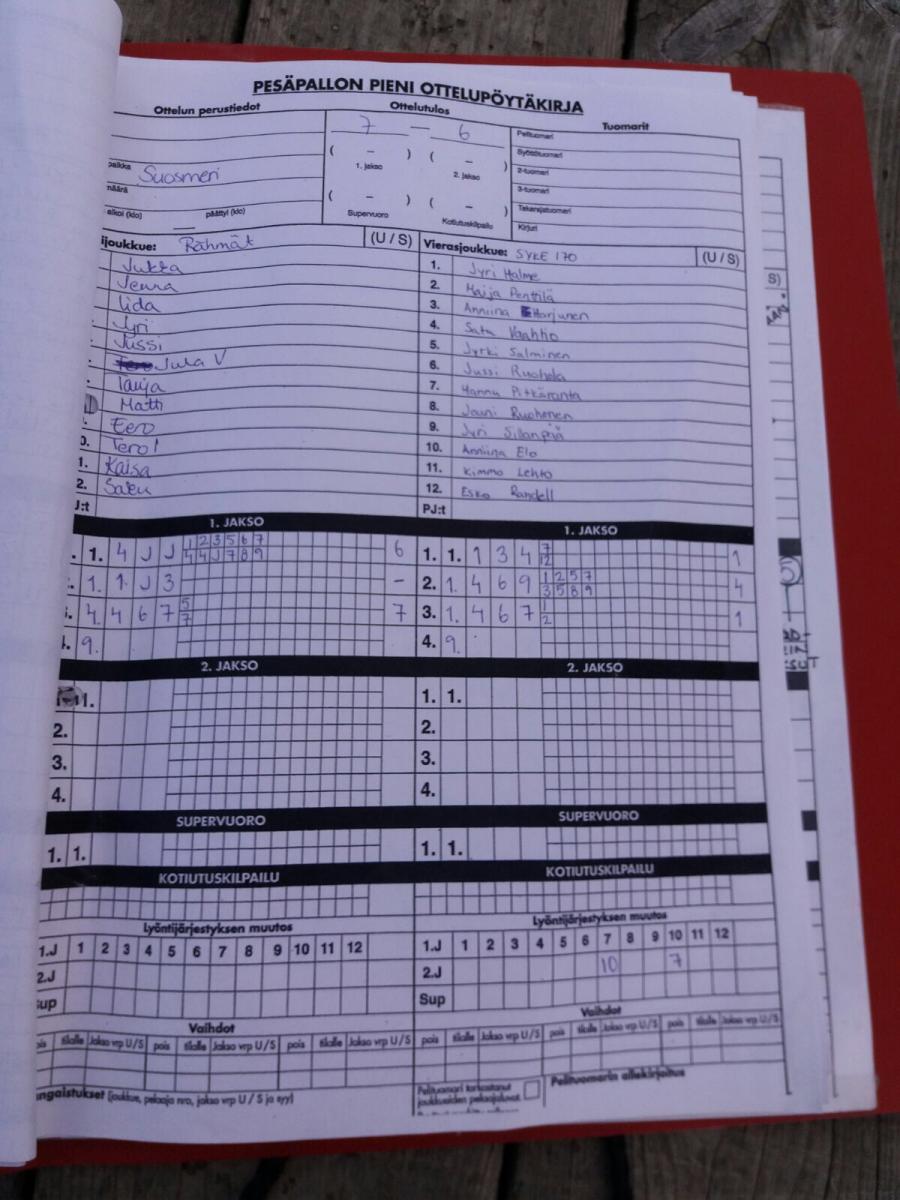 PESÄPALLON PIENI OTTELUPÖYTÄKIRJA
Ottelun perustiedot
Ottelutulos
Tuomarit
7 — 6
( – ) ( – )
1. jakso 2. jakso
( – ) ( – )
Supervuoro Kotiutuskilpailu
Pelituomari
Syöttötuomari
2-tuomari
3-tuomari
Takarajatuomari
Kirjuri
paikka Suosmeri
määrä
alkoi (klo) päättyi (klo)
ijoukkue: Rähmät (U / S)
Jukka
Jenna
Iida
Jyri
Jussi
Juha V
Tanja
Matti
Eero
0. Tero!
1. Kaisa
2. Satu
J:t
Vierasjoukkue: SYKE 170 (U / S)
1. Jyri Halme
2. Maija Penttilä
3. Anniina Harjunen
4. Satu Vaahtio
5. Jyrki Salminen
6. Jussi Ruohola
7. Hannu Pitkäranta
8. Jouni Ruohonen
9. Jyri Sillanpää
10. Anniina Elo
11. Kimmo Lehto
12. Esko Randell
PJ:t
1. JAKSO
. 1. 4 J J 1 2 3 5 6 7 6
4 4 J 7 8 9
. 1. 1 J 3 –
. 4 4 6 7 5 7
7
. 9.
1. JAKSO
1. 1. 1 3 4 7 1
12
2. 1. 4 6 9 1 2 5 7 4
3 5 8 9
3. 1. 4 6 7 1 1
2
4. 9.
2. JAKSO
1.
2.
3.
4.
2. JAKSO
1. 1.
2.
3.
4.
SUPERVUORO
1. 1.
SUPERVUORO
1. 1.
KOTIUTUSKILPAILU
KOTIUTUSKILPAILU
Lyöntijärjestyksen muutos
1.J 1 2 3 4 5 6 7 8 9 10 11 12
2.J
Sup
Lyöntijärjestyksen muutos
1.J 1 2 3 4 5 6 7 8 9 10 11 12
2.J 10 7
Sup
Vaihdot
pois tilalle Jakso vrp U/S pois tilalle Jakso vrp U/S pois tilalle Jakso vrp U/S
Vaihdot
pois tilalle Jakso vrp U/S pois tilalle Jakso vrp U/S pois tilalle Jakso vrp U/S
angaistukset (joukkue, pelaaja nro, jakso vrp U / S ja syy)
Pelituomari tarkastanut
joukkueiden pelaajaluvat
Pelituomarin allekirjoitus
S)